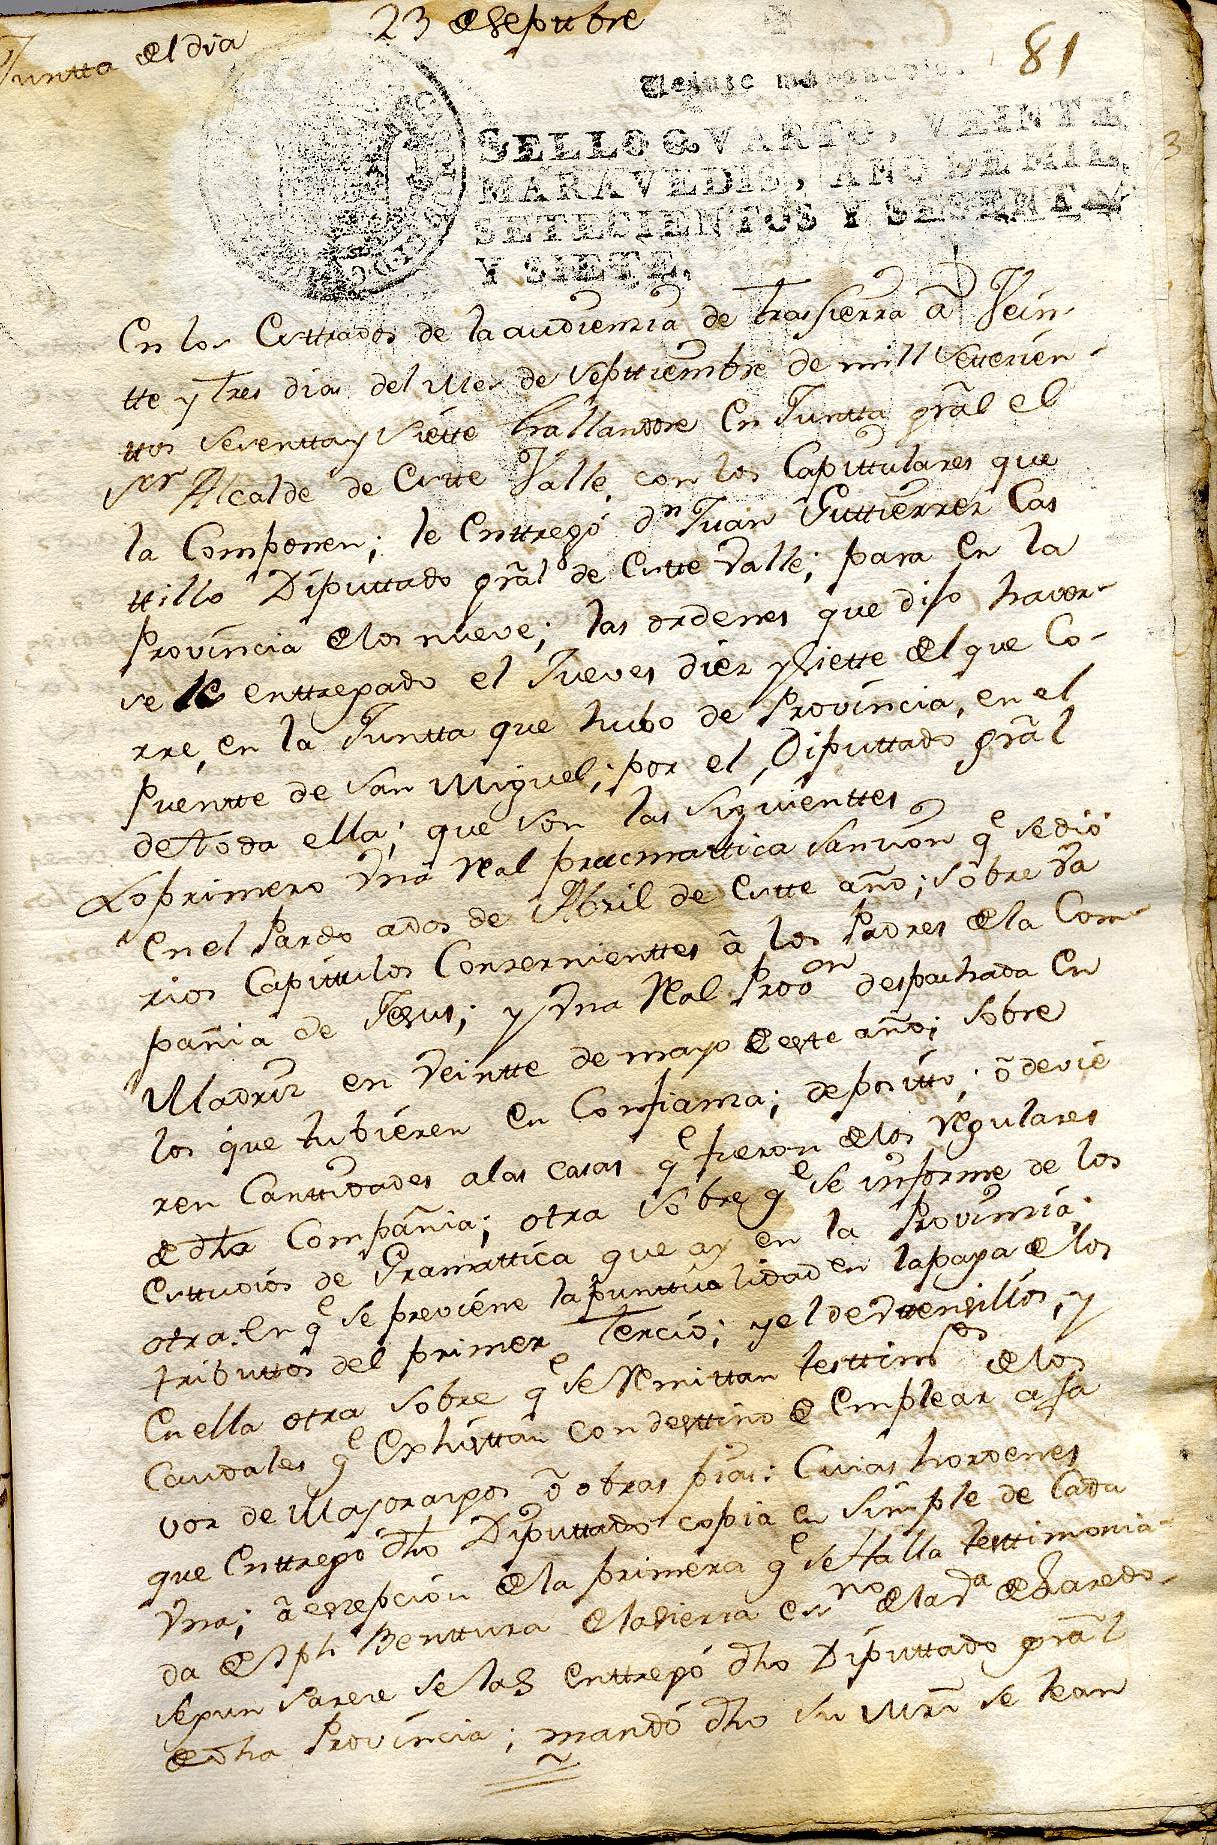 Juntta del dia 23 de Sepbre
81
Veinte maravedis.
SELLO QVARTO, VEINTE
MARAVEDIS, AÑO DE MIL
SETECIENTOS Y SESENTA
Y SIETE.
En los Esttrados de la audiencia de trasSierra â Vein-
tte y tres dias del Mes de Septtiembre de mill Settecien-
ttos Sesentta y Siette hallandose En Juntta gral el
Ssr Alcalde de Estte Valle, con los Capittulares que
la Componen; le Enttregó dn Juan Guttierrez Cas
ttillo Diputtado gral de Estte Valle; para En la
Provincia de los nueve; las ordenes que diso haver-
se le enttregado el Jueves diez y Siette del que Co-
rre, en la Juntta que hubo de Provincia, en el
Puentte de San Miguel; por el Diputtado gral
de toda ella; que son las Siguienttes
Lo primero Vna Real pracmattica sancion qe se dió
en el Pardo a dos de Abril de Estte año; sobre va
rios Capittulos Consernienttes â los Padres de la Com-
pañia de Jesus; y Vna Real Proon despachada En
Madriz en Veintte de mayo de este año; sobre
los que tubieren en Confianza; deposito; ô devie
ren Canttidades a las casas qe fueron de los Regulares
de dha Compañia; otra sobre qe se informe de los
Esttudios de Gramattica que ay en la Provincia;
otra. En qe se previene la punttualidad en la paga de los
tributtos del primer Tercio; y el de Uttensilios, y
En ella otra sobre qe se Remittan testtimos de los
Caudales qe Exhisttan con desttino de Emplear a fa
vor de Majorazgos ô obras pias: Cuias hordenes
que Enttregó dho Diputtado copia en Simple de Cada
Vna; â esepcion de la primera qe se Halla testtimonia-
da de Jph Benttura de la Sierra esno de la va de Laredo-
segun Parece se las Enttregó dho Diputtado gral
de dha Provincia; mandó dho su Mrd se lean